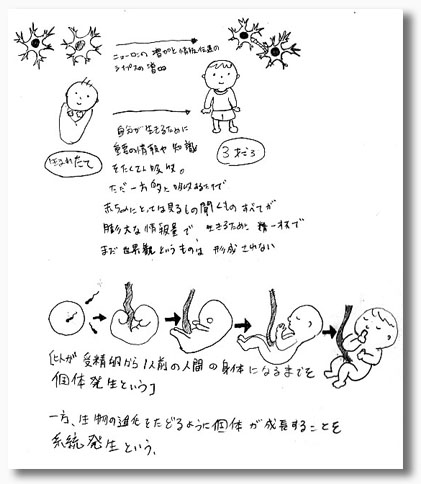 ニューロンの
シナプスの増加
生まれたて
3才ごろ
自分が生きるために
重要の情報や知識
をたくさん吸収。
ただ一方的に吸収するだけで
赤ちゃんにとっては見るもの聞くものすべてが
膨大な情報量で、生きるために精一杯で
まだ世界観というものは形成されない
[ヒトが受精卵から1人前の人間の身体になるまでを
個体発生という]
一方、生物の進化をたどるように個体が成長することを
系統発生という。